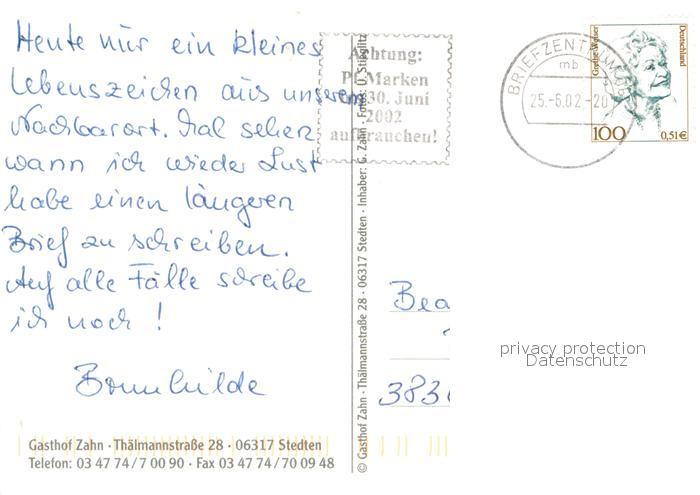 Heute nur ein kleines
Lebenszeichen aus unserem
Nachbarort. Mal sehen
wann ich wieder Lust
habe einen längeren
Brief zu schreiben.
Auf alle Fälle schreibe
ich noch!
Brunhilde
Gasthof Zahn · Thälmannstraße 28 · 06317 Stedten
Telefon: 03 47 74 / 7 00 90 · Fax 03 47 74 / 70 09 48
© Gasthof Zahn · Thälmannstraße 28 · 06317 Stedten · Inhaber: G. Zahn · Foto: U. Stieglitz
Achtung:
Pf-Marken
30. Juni
2002
aufbrauchen!
BRIEFZENTRUM
mb
25.-6.02-20
Grethe Weiser
Deutschland
100
0,51€
Bea
383
privacy protection
Datenschutz